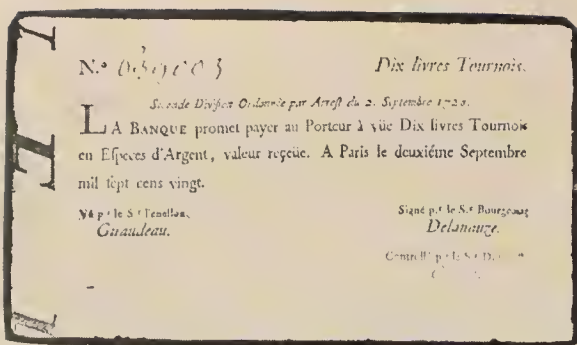 N.o Dix livres Tournois.
Seconde Division Ordonnée par Arrest du 2. Septembre 1720.
LA BANQUE promet payer au Porteur à vüe Dix livres Tournois
en Especes d'Argent, valeur reçeüe. A Paris le deuxiéme Septembre
mil sept cens vingt.
Vû p.r le S.r Fenellon, Signé p.r le S.r Bourgeois
Giraudeau. Delanauze.
Controllé p.r le S.r